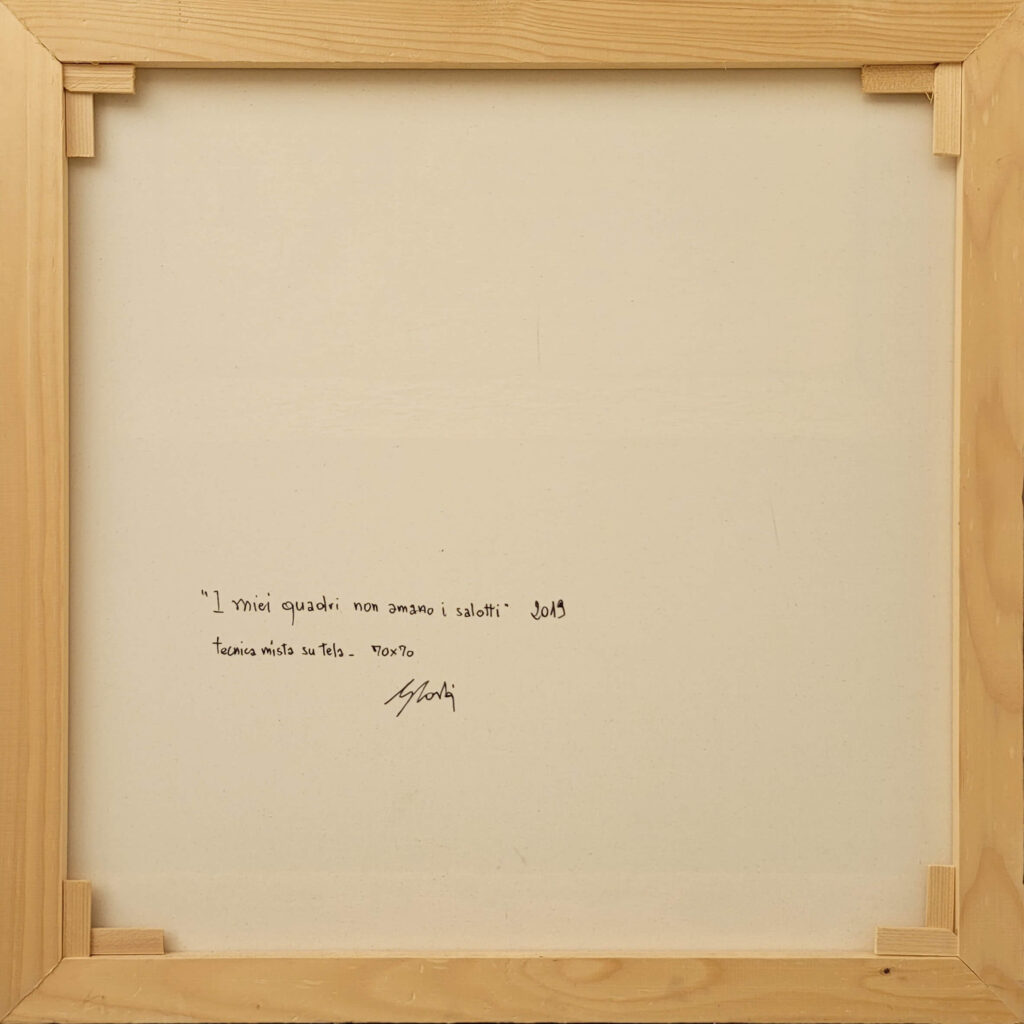 "I miei quadri non amano i salotti" 2019
tecnica mista su tela - 70x70